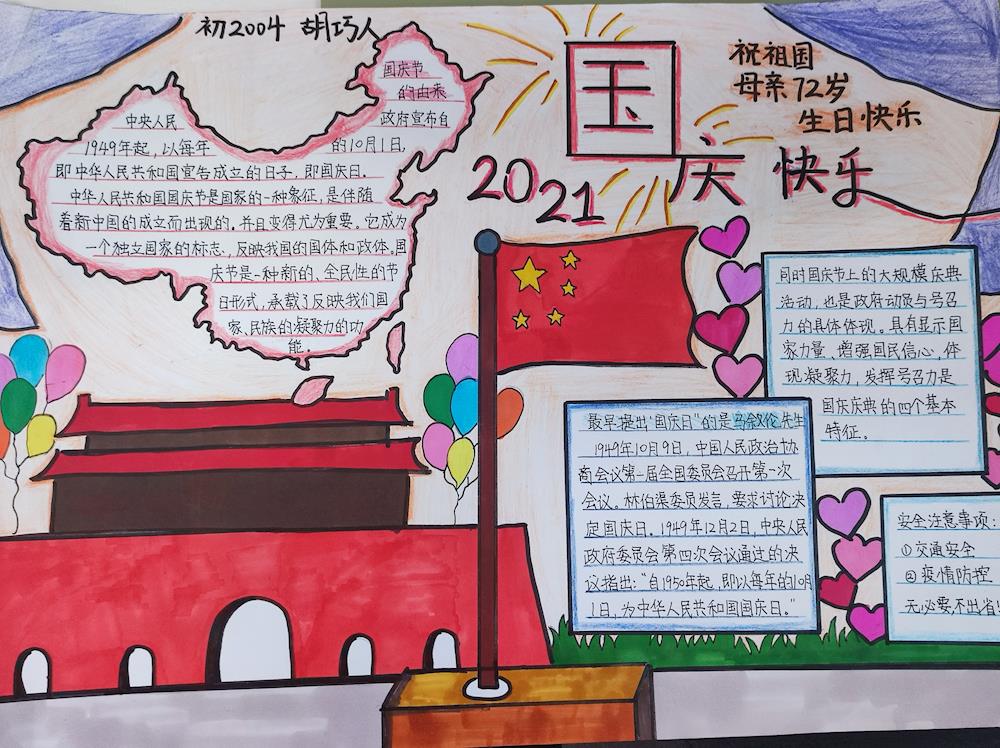 初2004 胡巧人
国庆节
的由来
中央人民
政府宣布自
1949年起，以每年
的10月1日，
即中华人民共和国宣告成立的日子，即国庆日。
中华人民共和国国庆节是国家的一种象征，是伴随
着新中国的成立而出现的，并且变得尤为重要。它成为
一个独立国家的标志，反映我国的国体和政体。国
庆节是一种新的、全民性的节
日形式，承载了反映我们国
家、民族的凝聚力的功
能。
祝祖国
母亲72岁
生日快乐
2021 国庆 快乐
同时国庆节上的大规模庆典
活动，也是政府动员与号召
力的具体体现。具有显示国
家力量、增强国民信心，体
现凝聚力，发挥号召力是
国庆庆典的四个基本
特征。
最早提出"国庆日"的是马叙伦先生
1949年10月9日，中国人民政治协
商会议第一届全国委员会召开第一次
会议。林伯渠委员发言，要求讨论决
定国庆日。1949年12月2日，中央人民
政府委员会第四次会议通过的决
议指出："自1950年起，即以每年的10月
1日，为中华人民共和国国庆日。"
安全注意事项：
①交通安全
②疫情防控
无必要，不出省！